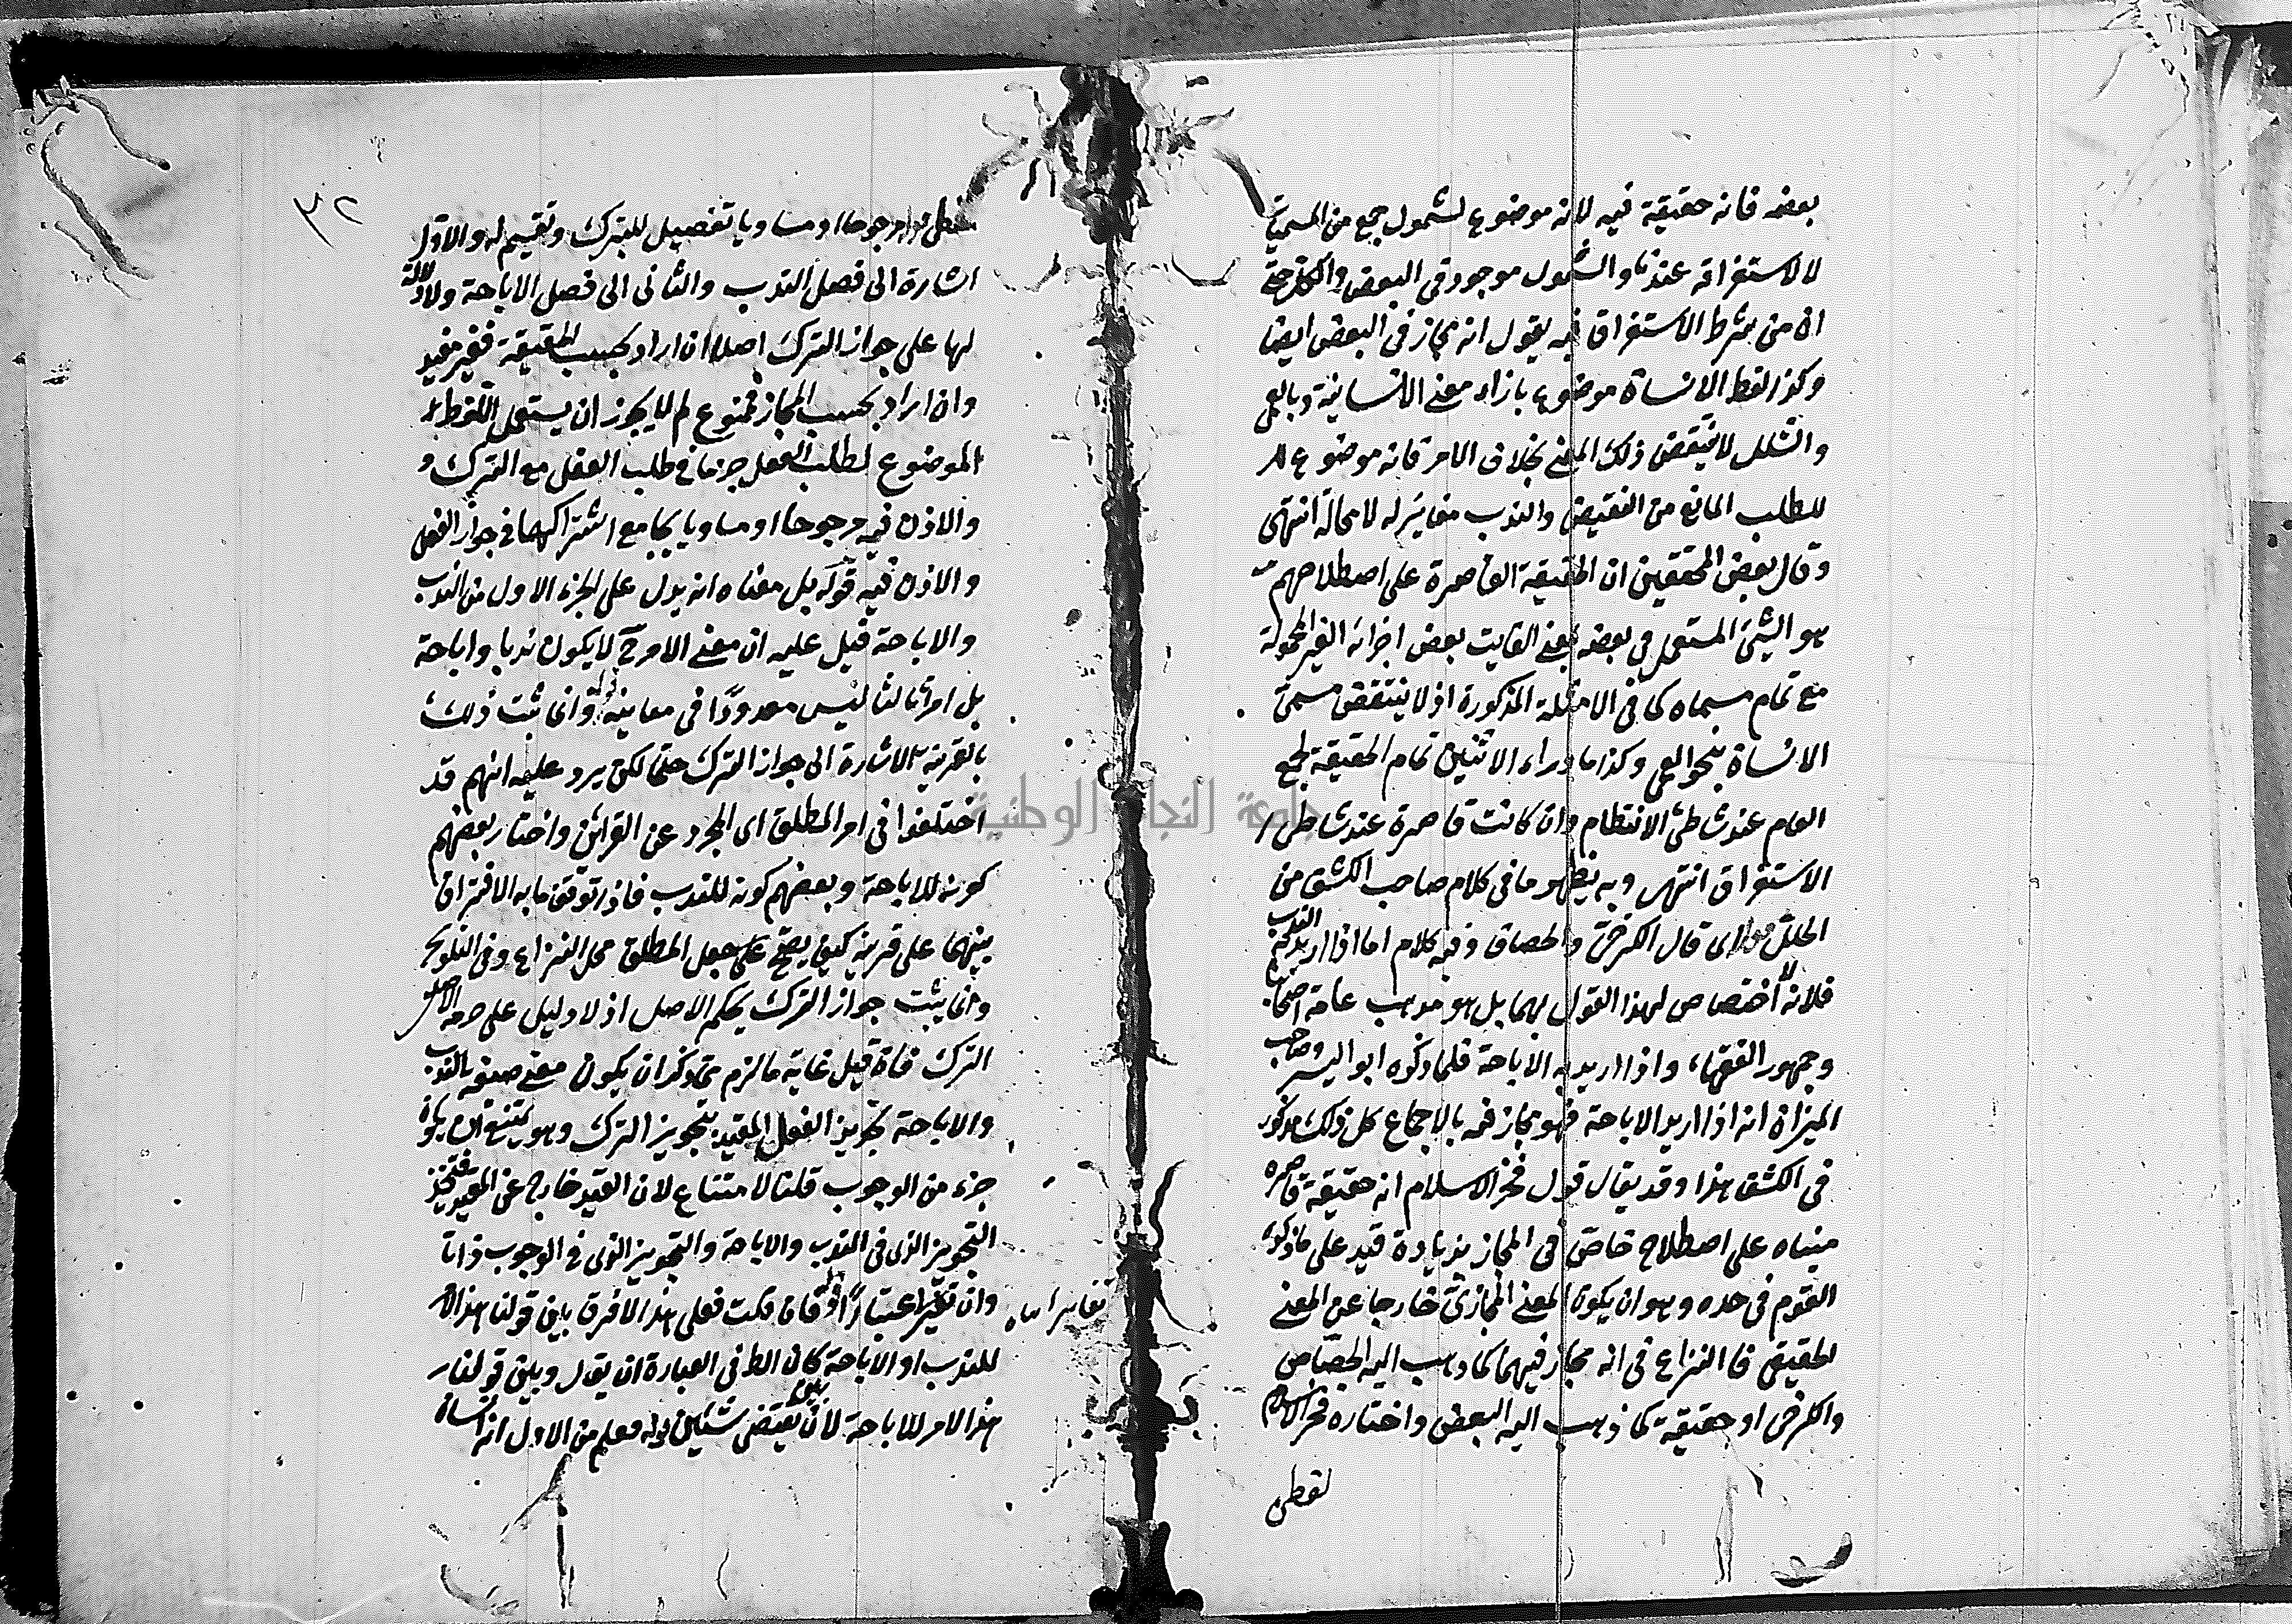 بعضه فانه حقيقة فيه لانه موضوع لشمول جمع من المسميات
لا لاستغراقه عندنا والشمول موجود في البعض
ان من شرط الاستغراق فيه يقول انه مجاز في البعض ايضا
وكذا لفظ الانسان موضوع بازاء معنى الانسانية وبالعمى
والشلل لا ينتقض ذلك المعنى بخلاف الامر فانه موضوع
للطلب المانع من النقيض والندب مغاير له لا محالة انتهى
وقال بعض المحققين ان الحقيقة القاصرة على اصطلاحهم
هو الشيئ المستعمل في بعضه بمعنى الفايت بعض اجزائه الغير المحمولة
مع تمام مسماه كما في الامثلة المذكورة اذ لا ينتقض مسمى
الانسان بنحو العمى وكذا ما وراء الاثنين تمام الحقيقة لجمع
العام عند شاطئ الانتظام وان كانت قاصرة عند شاطئ
الاستغراق انتهى وبه يظهر ما في كلام صاحب الكشف من
الخلل قوله اي قال الكرخي والجصاص وفيه كلام اما اذا اريد به الندب
فلانه لا اختصاص لهذا القول بهما بل هو مذهب عامة اصحابنا
وجمهور الفقهاء واذا اريد به الاباحة فلما ذكره ابو اليسر وصاحب
الميزان انه اذا اريد الاباحة فهو مجاز فيه بالاجماع كل ذلك مذكور
في الكشف هذا وقد يقال قول فخر الاسلام انه حقيقة قاصرة
مبناه على اصطلاح خاص في المجاز بزيادة قيد على ما ذكره
القوم في حده وهو ان يكون المعنى المجازي خارجا عن المعنى
الحقيقي فا النزاع في انه مجاز فيهما كما ذهب اليه الجصاص
والكرخي او حقيقة كما ذهب اليه البعض واختاره فخر الاسلام
لفظي
٣٢
لفظي قوله مرجوحا او مساويا تفصيل للترك وتقسيم له والاول
اشارة الى فصل الندب والثاني الى فصل الاباحة ولا دلالة
لها على جواز الترك اصلا ان اراد بحسب الحقيقة فغير مفيد
وان اراد بحسب المجاز فممنوع لم لا يجوز ان يستعمل اللفظ
الموضوع لطلب الفعل جزما في طلب الفعل مع الترك و
والاذن فيه مرجوحا او مساويا بجامع اشتراكهما في جواز الفعل
والاذن فيه قوله بل معناه انه يدل على الجزء الاول من الندب
والاباحة قيل عليه ان معنى الامر ح لا يكون ندبا واباحة
بل امرا ثالثا ليس معدودا في معانيه وانما ثبت ذلك
بالقرينة الاشارة الى جواز الترك حتما لكن يرد عليه انهم قد
اختلفوا في امر المطلق اي المجرد عن القرائن واختار بعضهم
كونه للاباحة وبعضهم كونه للندب فاذا توقف ما به الافتراق
بينهما على قرينة كيف يصح جعل المطلق محل النزاع وفي التلويح
وانما يثبت جواز الترك بحكم الاصل اذ لا دليل على حرمة
الترك فان قيل غاية ما لزم مما ذكر ان يكون معنى صيغة الندب
والاباحة تجويز الفعل المقيد بتجويز الترك وهو يمتنع ان يكون
جزء من الوجوب قلنا لا امتناع لان القيد خارج عن المقيد فيتحد
التجويز الذي في الندب والاباحة والتجويز الذي في الوجوب ذاتا
وان تغير اعتبارا فان قلت فعلى هذا لا فرق بين قولنا هذا الامر
للندب او الاباحة كان الظ في العبارة ان يقول وبين قولنا
هذا الامر للاباحة لان بين يقتضي شيئين قوله فعلم من الاول انه انسان
جامعة النجاح الوطنية